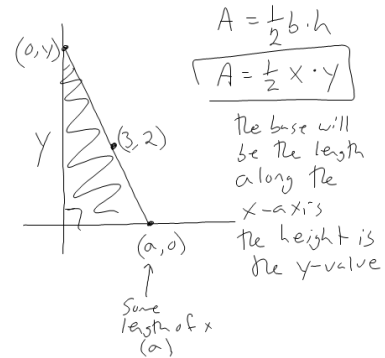 A = 1/2 b · h
(0, y)
A = 1/2 x · y
y
(3, 2)
the base will
be the length
along the
x-axis
the height is
the y-value
(a, 0)
Some
length of x
(a)